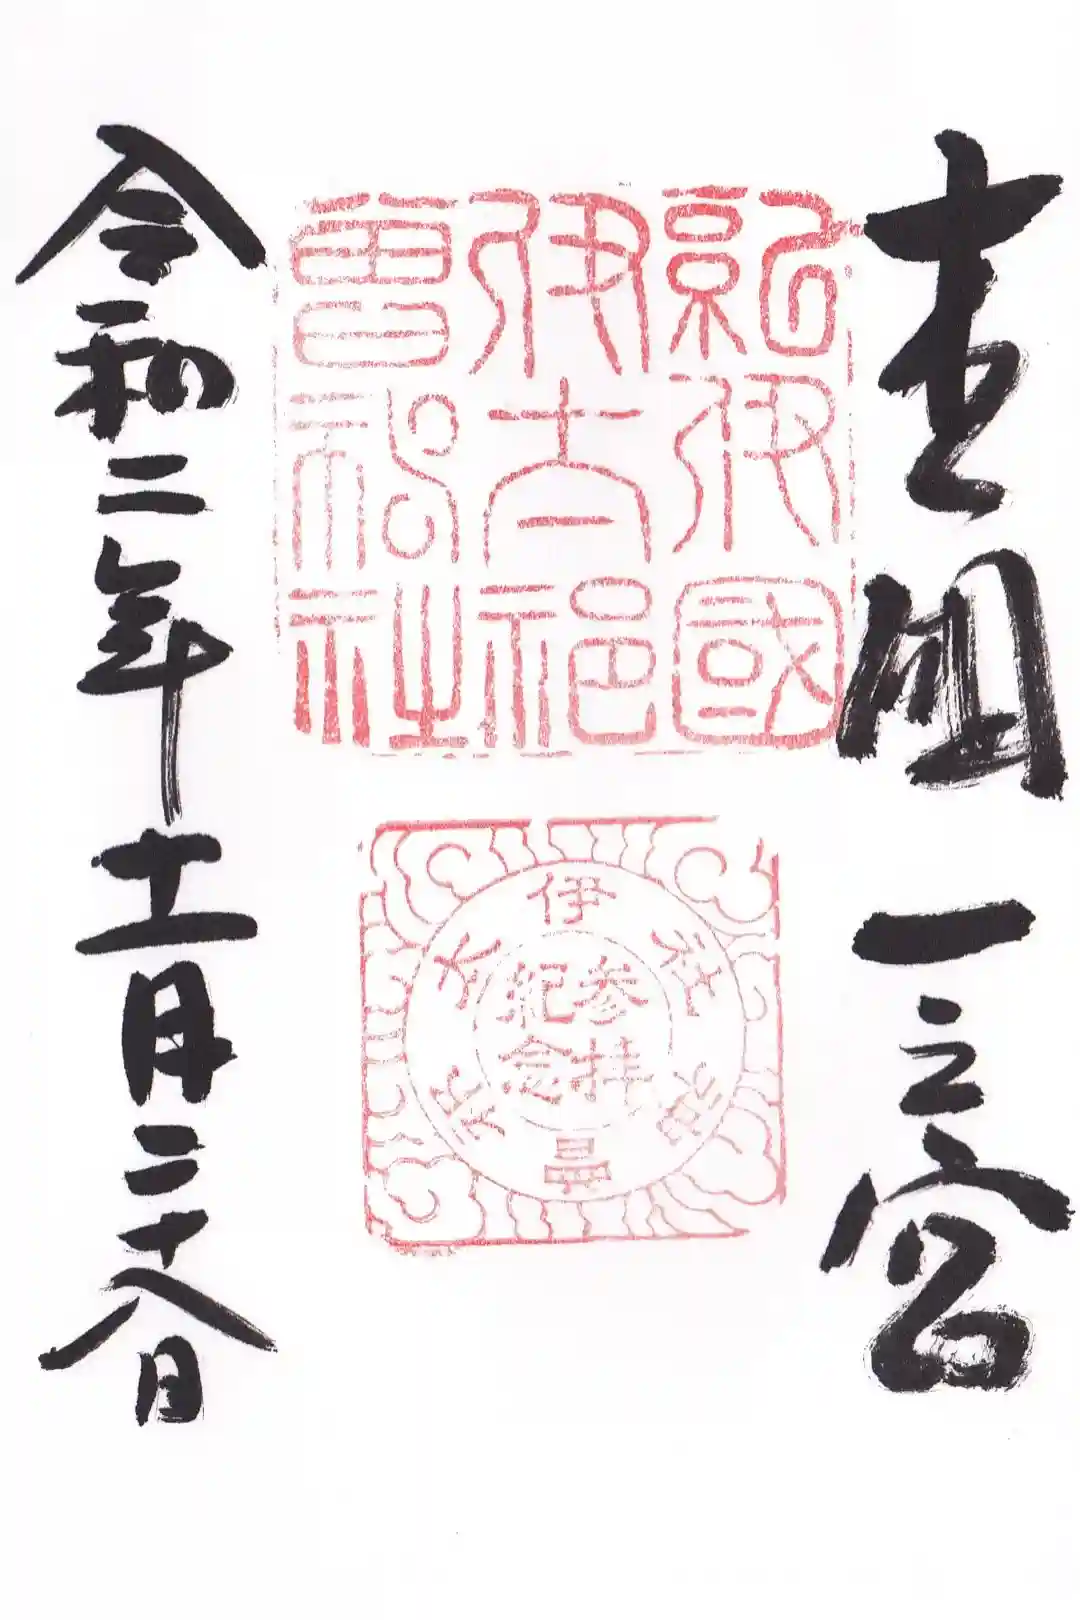 國一之宮
紀伊國
伊太祁
曽神社
伊太祁曽神社
参拝
紀念
令和二年十一月二十八日